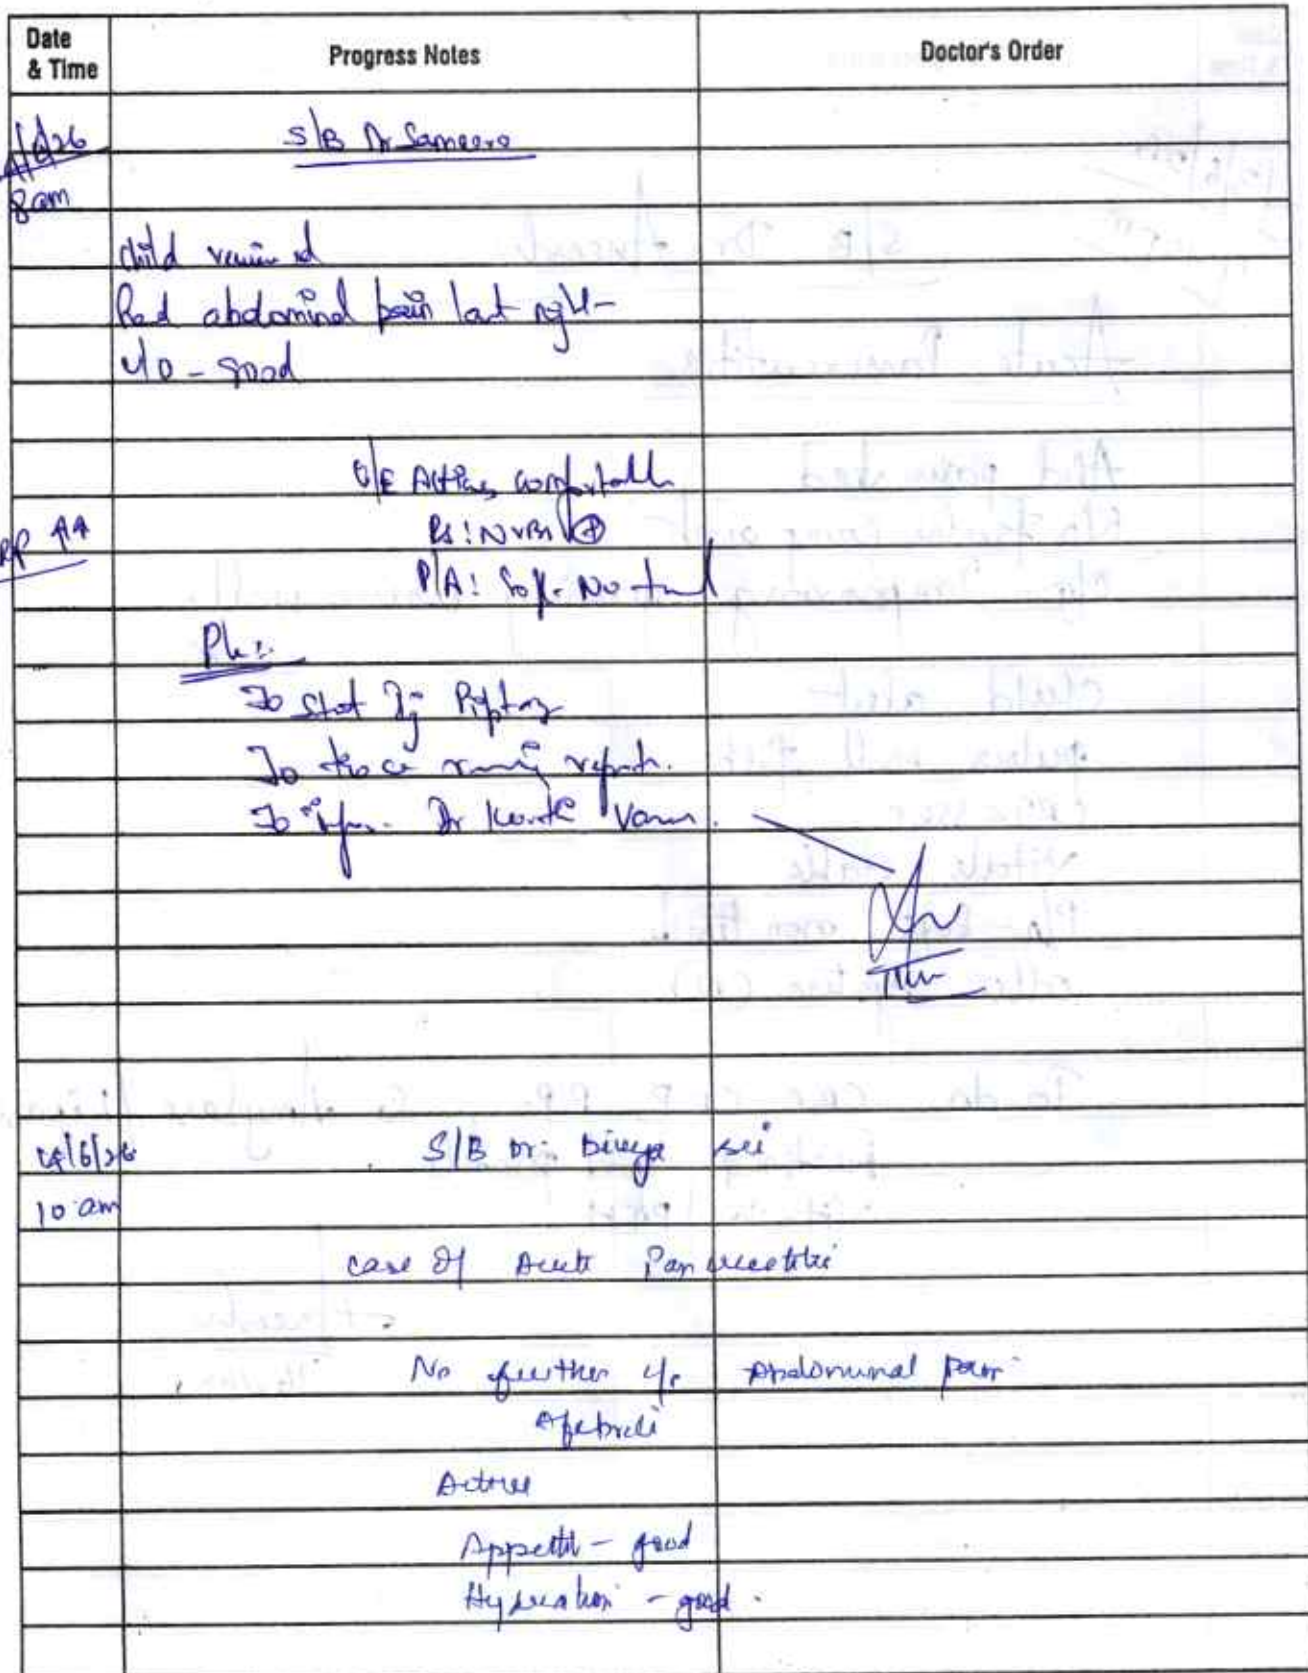 Date & Time Progress Notes Doctor's Order
/6/26 S/B Dr Sameera
8am
Child reviewed
Had abdominal pain last night
U/O - good
O/E Active, comfortable
RS: NVBS ⊕
P/A: Soft. No
Plan:
To start Inj Piptaz
To trace reports.
To inform Dr
14/6/26 S/B Dr. Divya sri
10 am
case of Acute Pancreatitis
No further c/o Abdominal pain
Afebrile
Active
Appetite - good
Hydration - good.